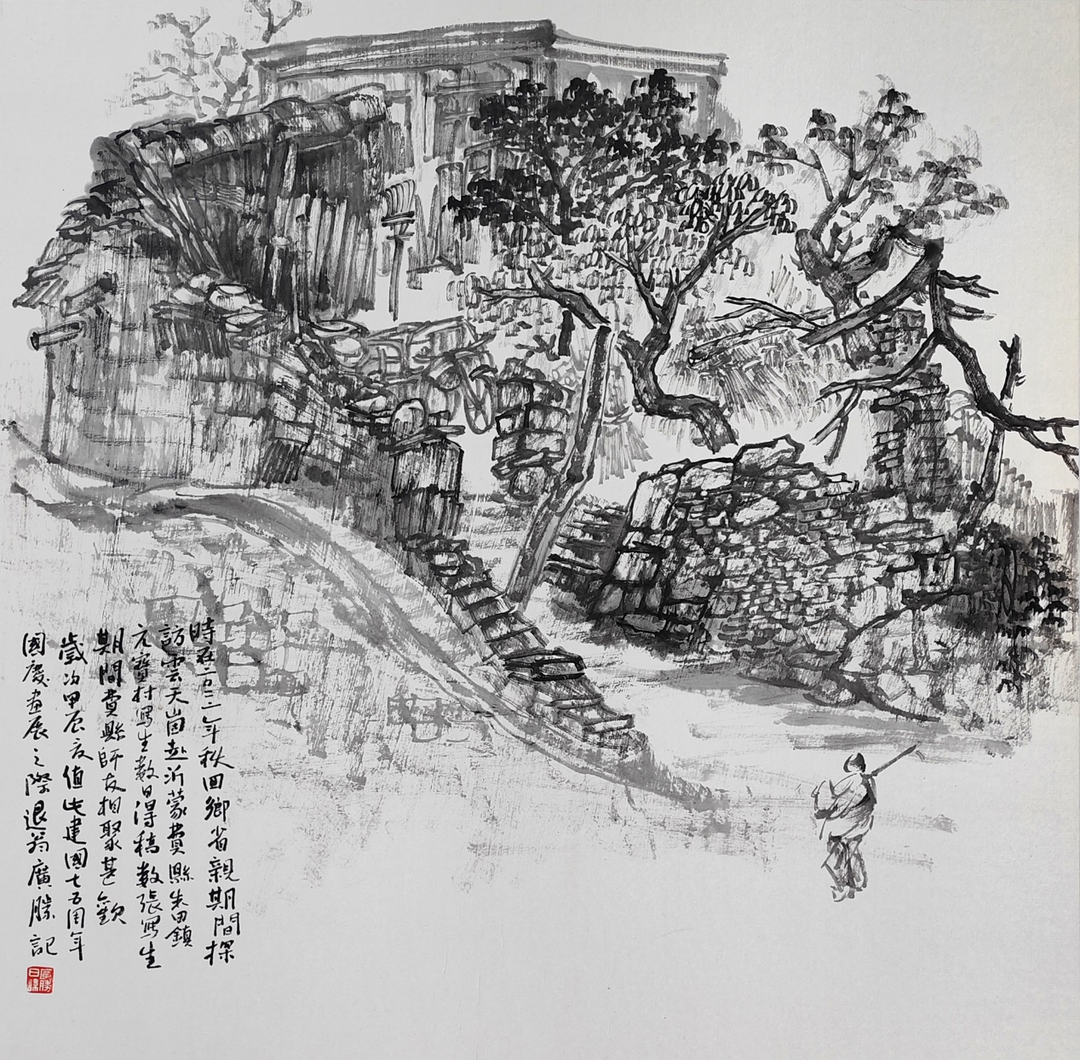 時在二〇二二年秋回鄉省親期間探
訪雲天崮赴沂蒙費縣朱田鎮
元寶村寫生數日得稿數張寫生
期間費縣師友相聚甚歡
歲次甲辰夏值此建國七五周年
國慶畫展之際退翁廣勝記